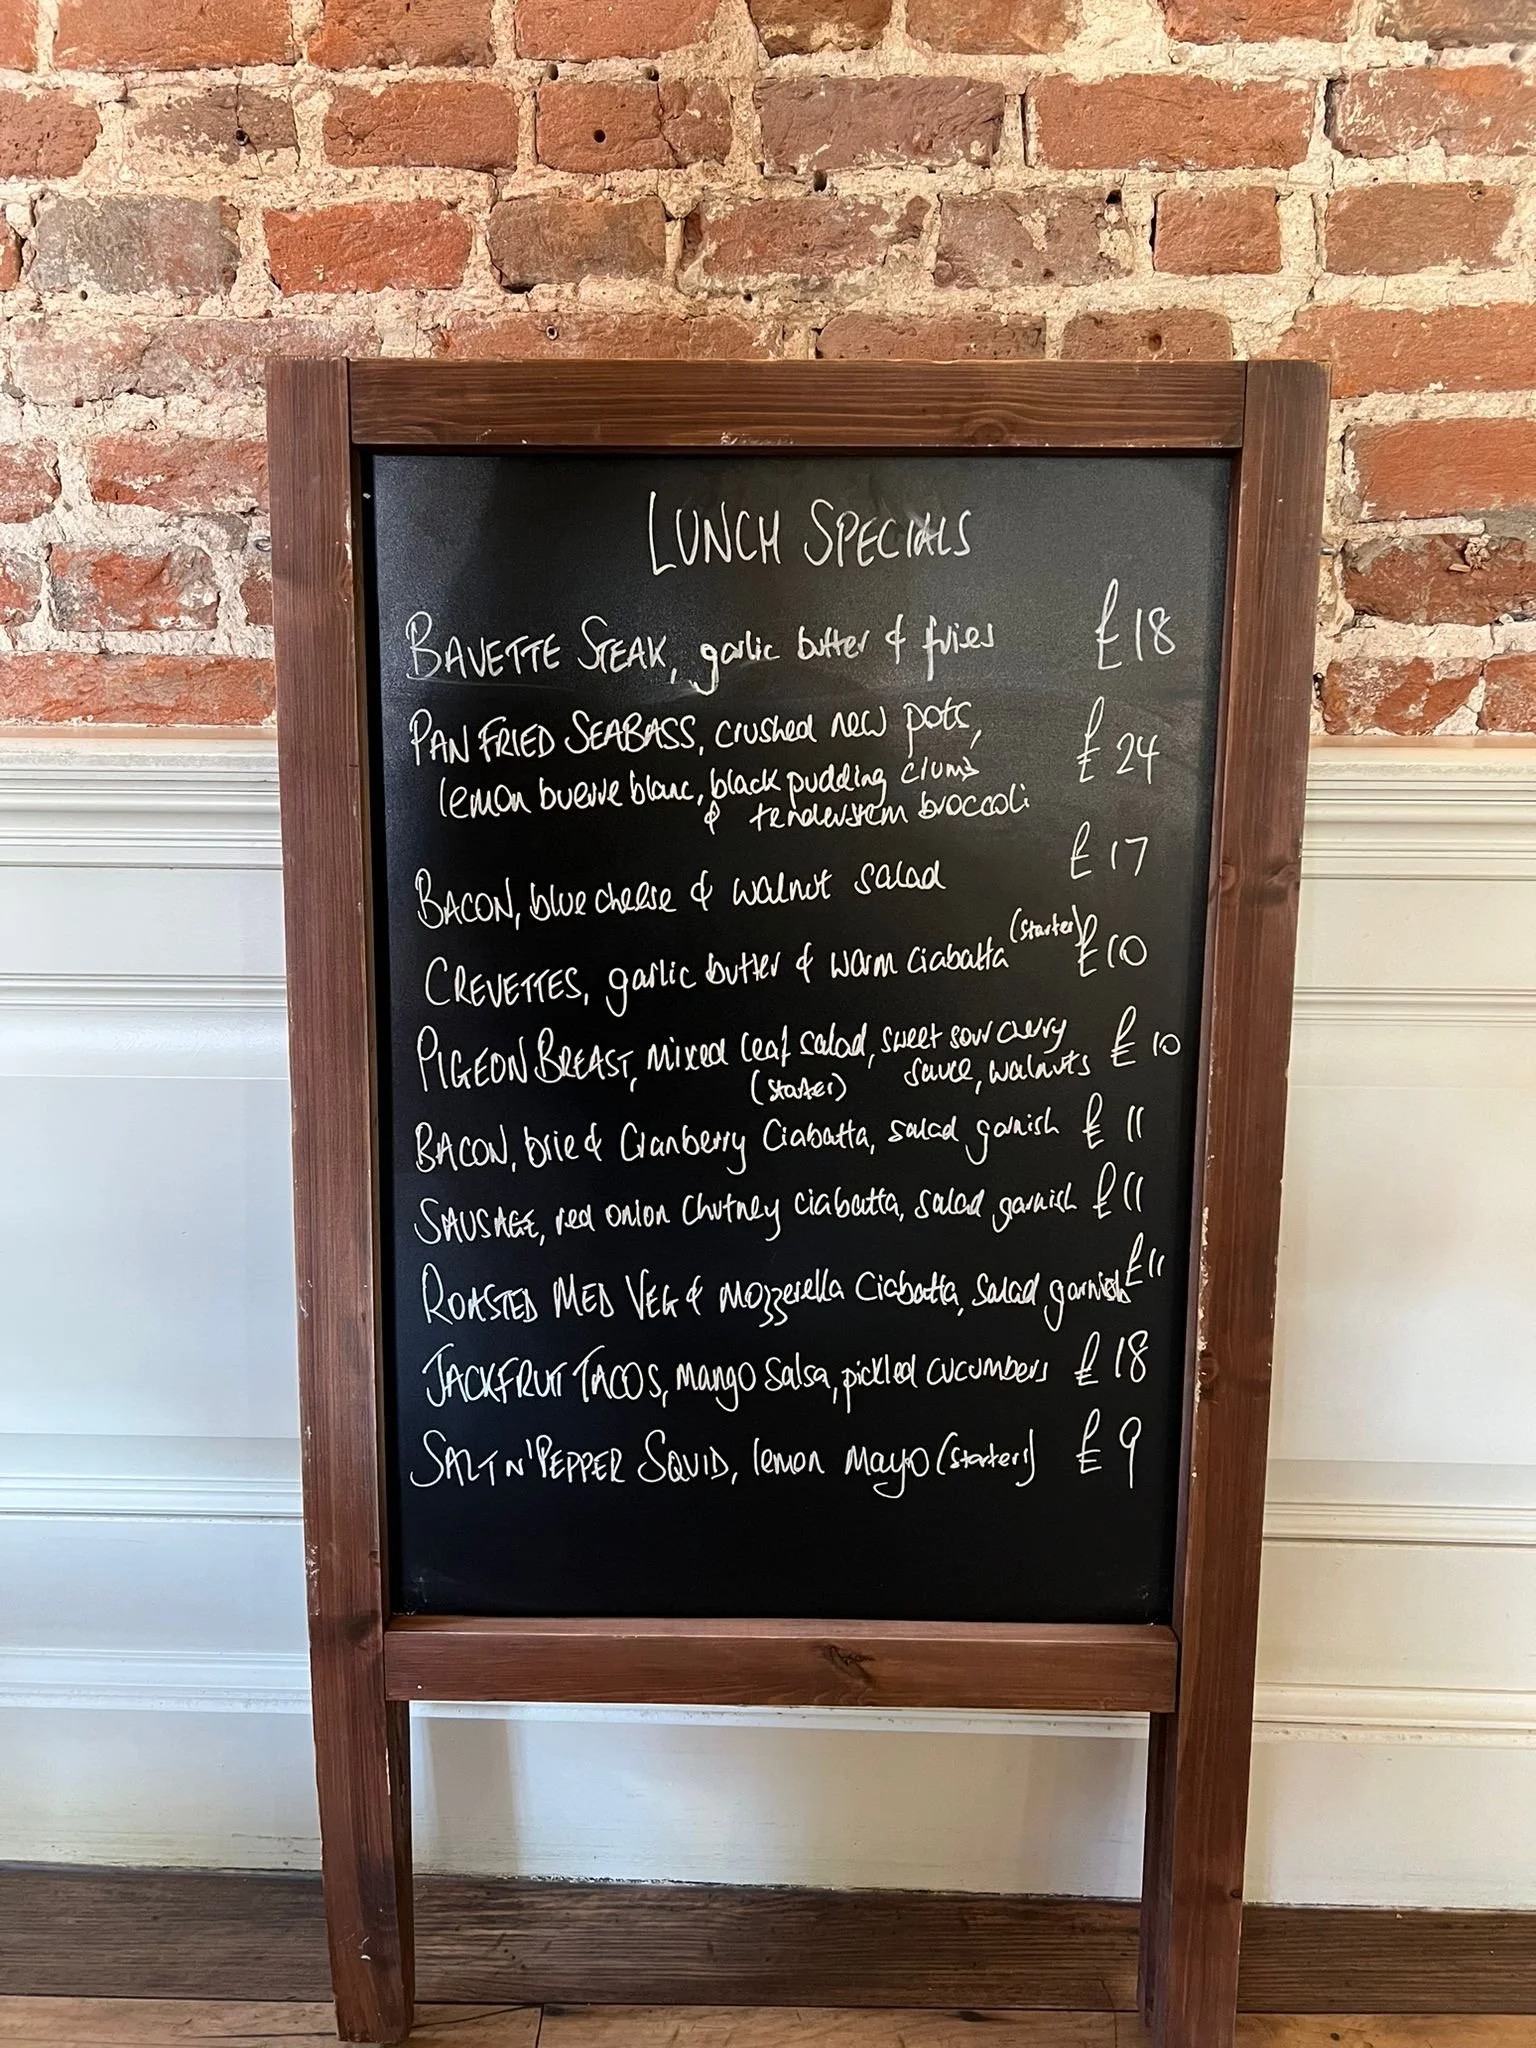 LUNCH SPECIALS
BAVETTE STEAK, garlic butter & fries £18
PAN FRIED SEABASS, crushed new pots, £24
lemon buerre blanc, black pudding crumb
& tenderstem broccoli
BACON, blue cheese & walnut salad £17
CREVETTES, garlic butter & warm ciabatta (starter) £10
PIGEON BREAST, mixed leaf salad, sweet sour cherry £10
(starter) sauce, walnuts
BACON, brie & Cranberry Ciabatta, salad garnish £11
SAUSAGE, red onion chutney ciabatta, salad garnish £11
ROASTED MED VEG & mozzerella Ciabatta, salad garnish £11
JACKFRUIT TACOS, mango salsa, pickled cucumbers £18
SALT N' PEPPER SQUID, lemon mayo (starter) £9